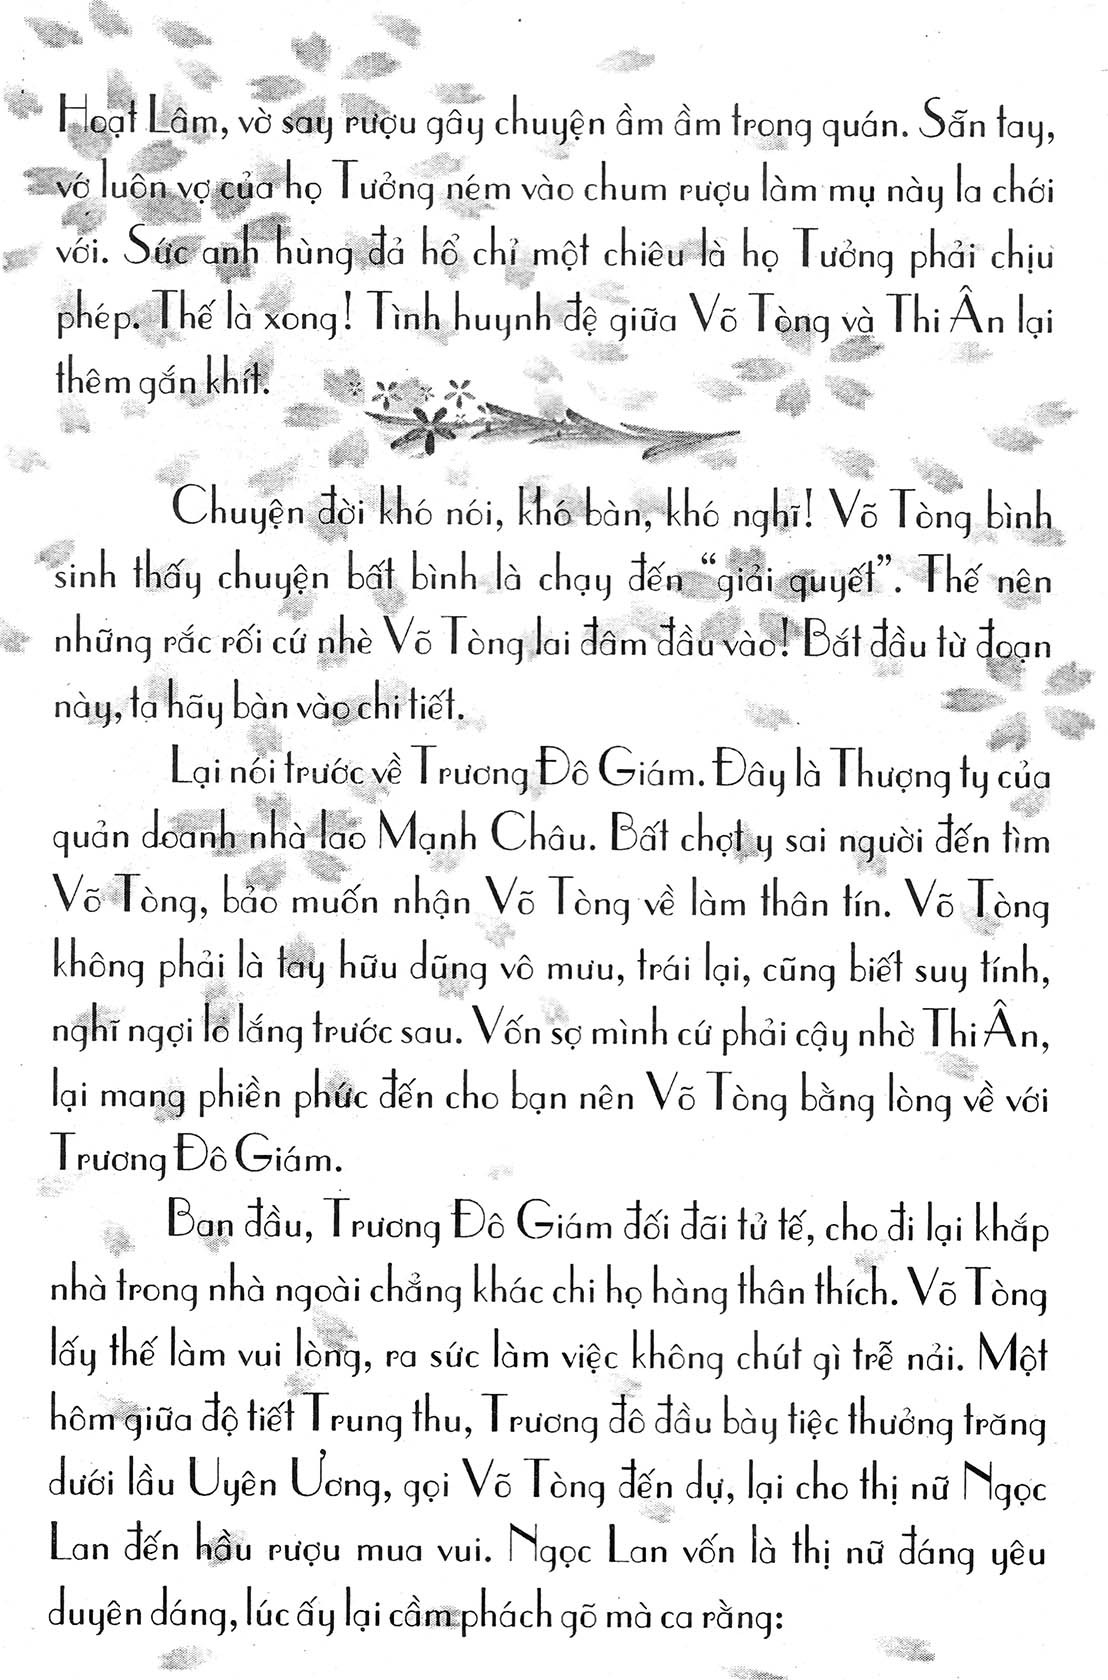 Hoạt Lâm, vờ say rượu gây chuyện ầm ầm trong quán. Sẵn tay,
vớ luôn vợ của họ Tưởng ném vào chum rượu làm mụ này la chới
với. Sức anh hùng đả hổ chỉ một chiêu là họ Tưởng phải chịu
phép. Thế là xong! Tình huynh đệ giữa Võ Tòng và Thi Ân lại
thêm gắn khít.
Chuyện đời khó nói, khó bàn, khó nghĩ! Võ Tòng bình
sinh thấy chuyện bất bình là chạy đến “giải quyết”. Thế nên
những rắc rối cứ nhè Võ Tòng lai đâm đầu vào! Bắt đầu từ đoạn
này, ta hãy bàn vào chi tiết.
Lại nói trước về Trương Đô Giám. Đây là Thượng ty của
quản doanh nhà lao Mạnh Châu. Bất chợt y sai người đến tìm
Võ Tòng, bảo muốn nhận Võ Tòng về làm thân tín. Võ Tòng
không phải là tay hữu dũng vô mưu, trái lại, cũng biết suy tính,
nghĩ ngợi lo lắng trước sau. Vốn sợ mình cứ phải cậy nhờ Thi Ân,
lại mang phiền phức đến cho bạn nên Võ Tòng bằng lòng về với
Trương Đô Giám.
Ban đầu, Trương Đô Giám đối đãi tử tế, cho đi lại khắp
nhà trong nhà ngoài chẳng khác chi họ hàng thân thích. Võ Tòng
lấy thế làm vui lòng, ra sức làm việc không chút gì trễ nải. Một
hôm giữa độ tiết Trung thu, Trương đô đầu bày tiệc thưởng trăng
dưới lầu Uyên Ương, gọi Võ Tòng đến dự, lại cho thị nữ Ngọc
Lan đến hầu rượu mua vui. Ngọc Lan vốn là thị nữ đáng yêu
duyên dáng, lúc ấy lại cầm phách gõ mà ca rằng: